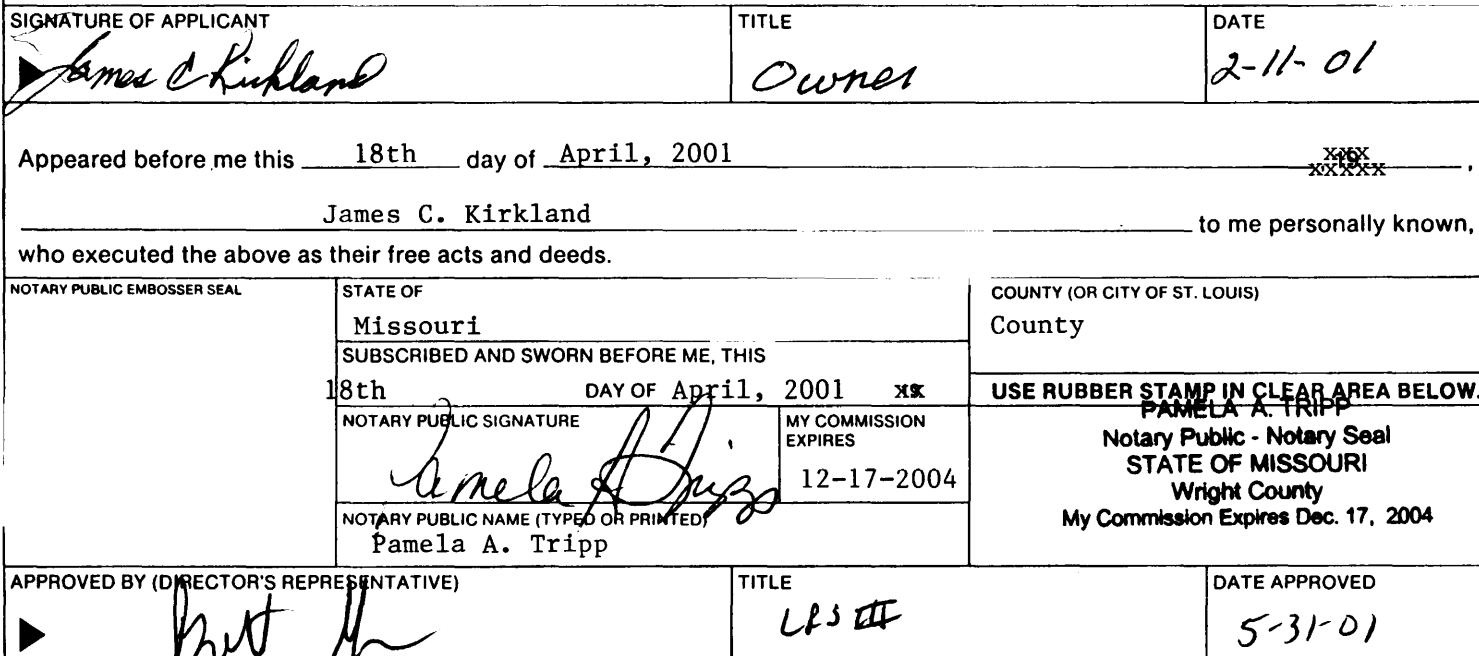 SIGNATURE OF APPLICANT TITLE DATE
James C Kirkland Owner 2-11-01
Appeared before me this 18th day of April, 2001 ,
James C. Kirkland to me personally known,
who executed the above as their free acts and deeds.
NOTARY PUBLIC EMBOSSER SEAL
STATE OF
Missouri
COUNTY (OR CITY OF ST. LOUIS)
County
SUBSCRIBED AND SWORN BEFORE ME, THIS
18th DAY OF April, 2001
NOTARY PUBLIC SIGNATURE
Pamela A Tripp
MY COMMISSION
EXPIRES
12-17-2004
NOTARY PUBLIC NAME (TYPED OR PRINTED)
Pamela A. Tripp
USE RUBBER STAMP IN CLEAR AREA BELOW.
PAMELA A. TRIPP
Notary Public - Notary Seal
STATE OF MISSOURI
Wright County
My Commission Expires Dec. 17, 2004
APPROVED BY (DIRECTOR'S REPRESENTATIVE) TITLE DATE APPROVED
III 5-31-01